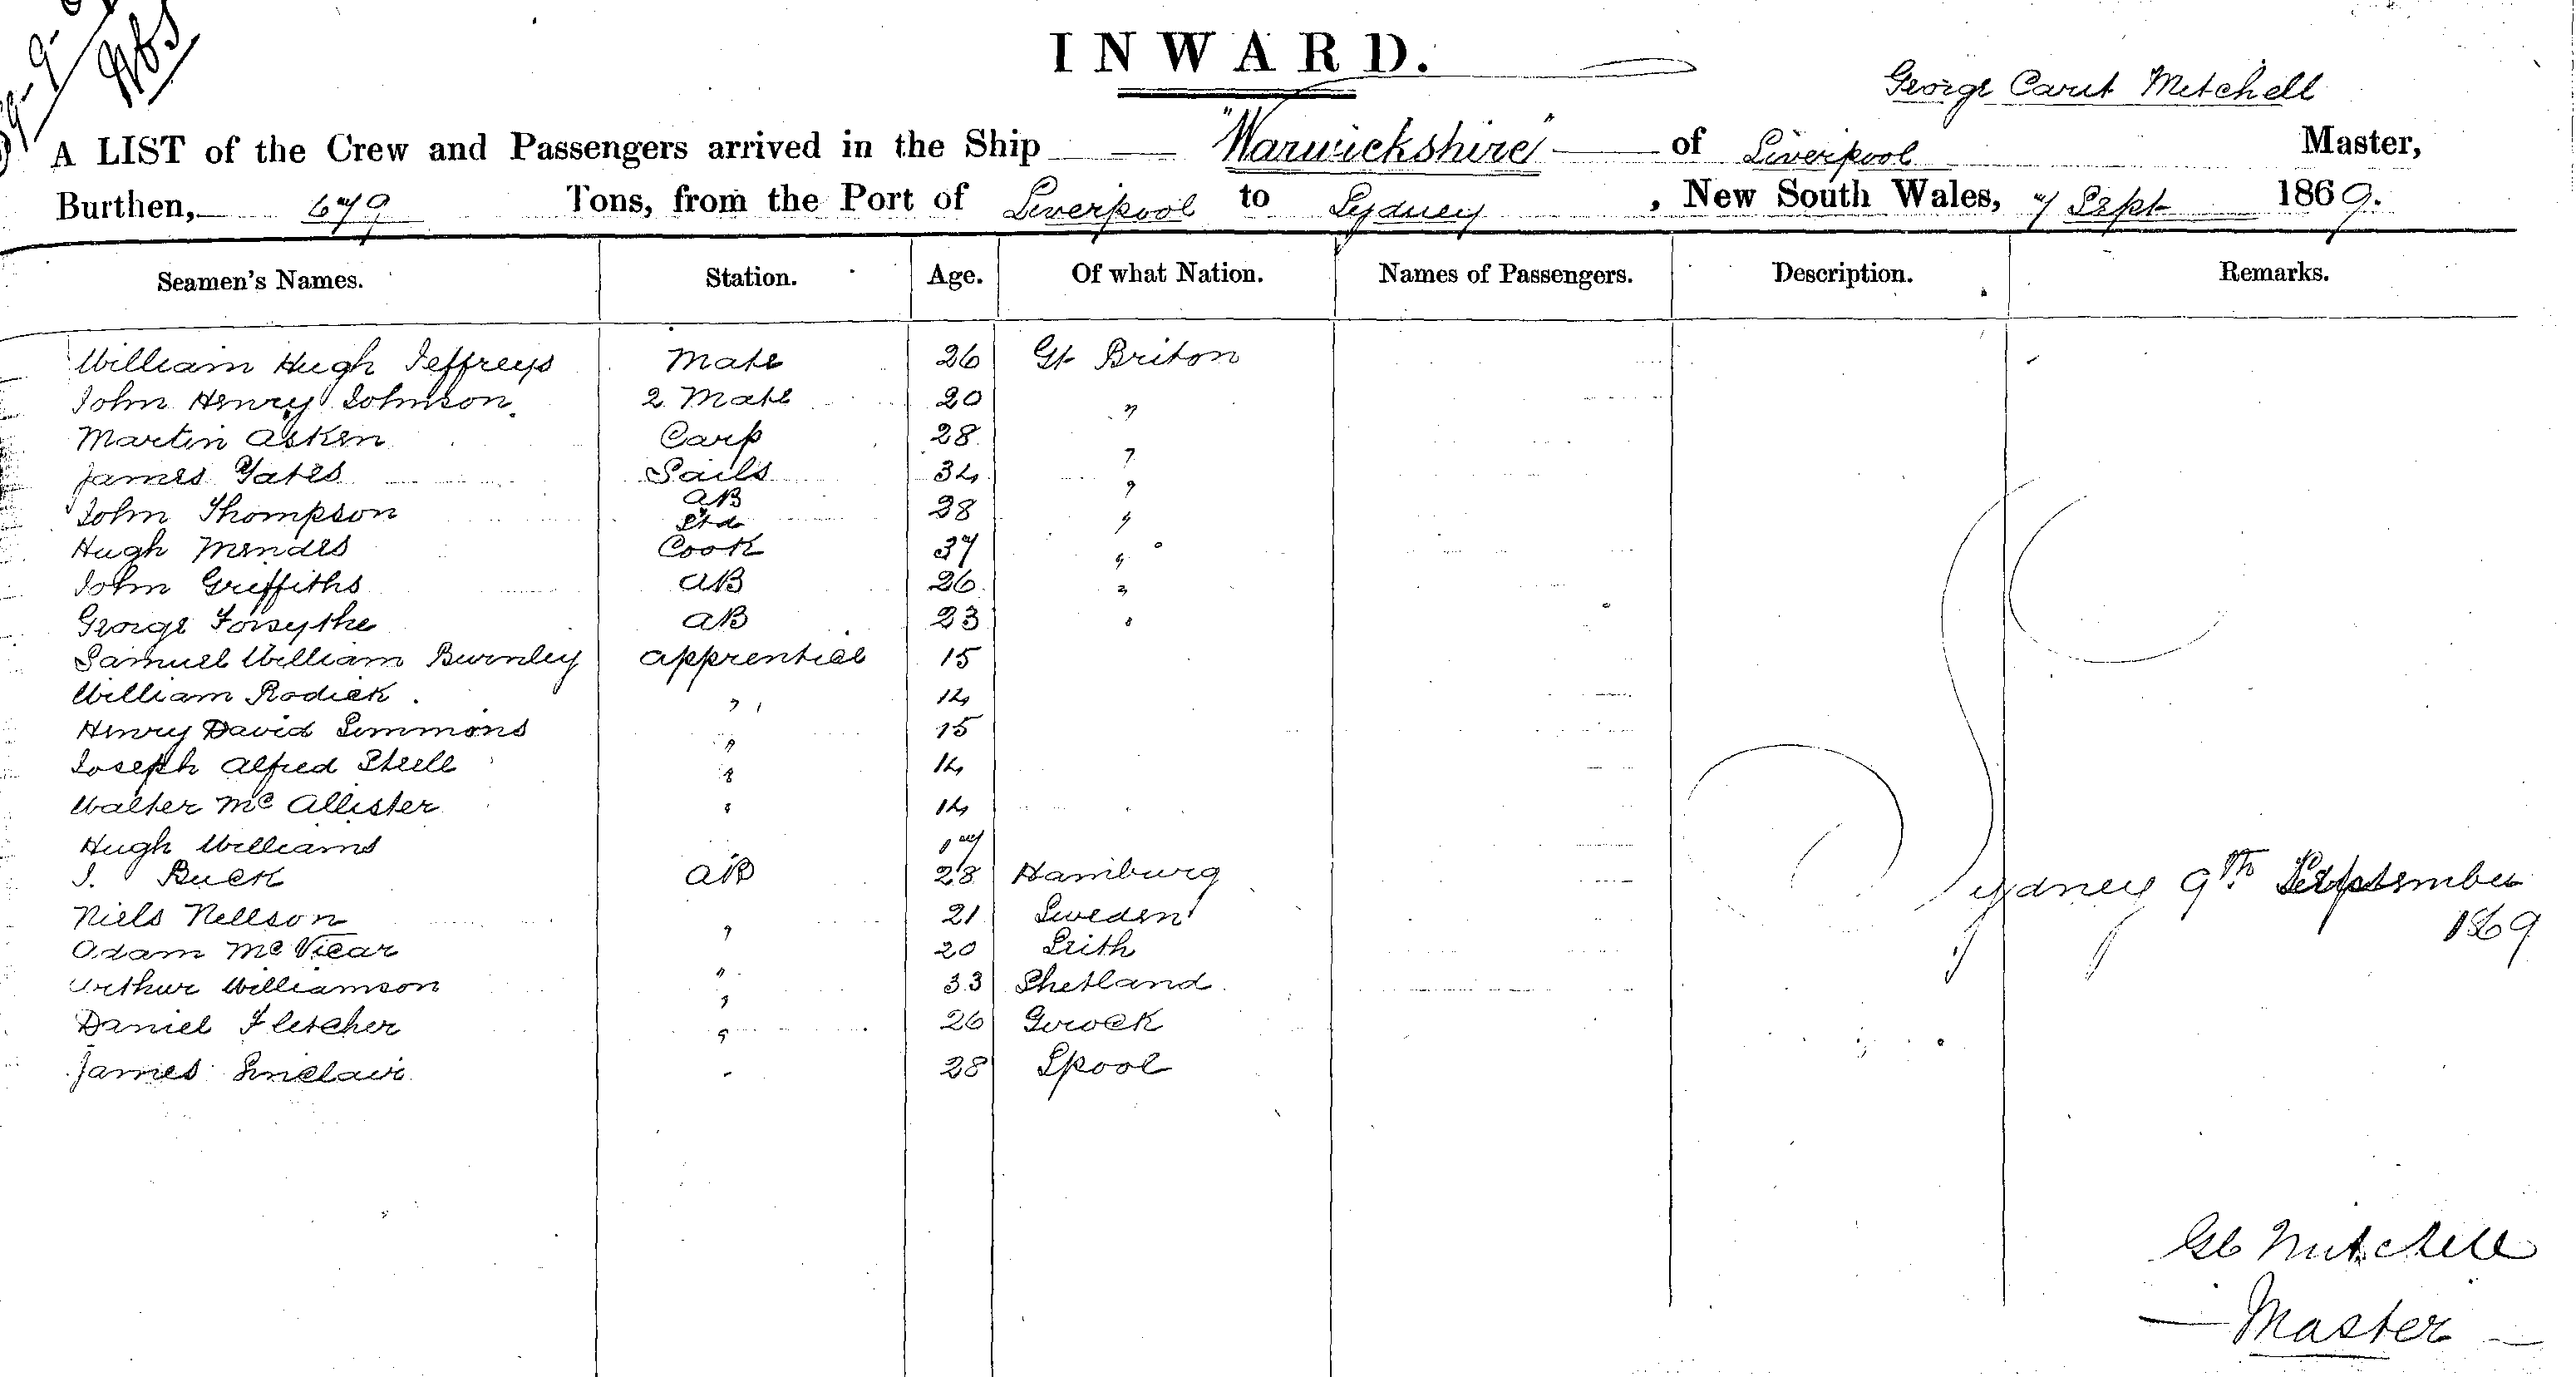 INWARD.
George Carut Mitchell
A LIST of the Crew and Passengers arrived in the Ship "Warwickshire" of Liverpool Master,
Burthen, 679 Tons, from the Port of Liverpool to Sydney, New South Wales, 7 Sept 1869.
Seamen's Names. Station. Age. Of what Nation. Names of Passengers. Description. Remarks.
William Hugh Jeffreys Mate 26 Gt Briton
John Henry Johnson 2 Mate 20 "
Martin Asken Carp 28 "
James Yates Sails 34 "
John Thompson AB Std 38 "
Hugh Mendes Cook 37 "
John Griffiths AB 26 "
George Forsythe AB 23 "
Samuel William Burnley apprentice 15
William Rodick " 14
Henry David Simmons " 15
Joseph Alfred Steell " 14
Walter McAllister " 14
Hugh Williams 17
J. Buck AB 28 Hamburg
Niels Nellson " 21 Sweden
Adam McVicar " 20 Leith
Arthur Williamson " 33 Shetland
Daniel Fletcher " 26 Gorock
James Sinclair " 28 Lpool
Sydney 9th September
1869
GC Mitchell
Master